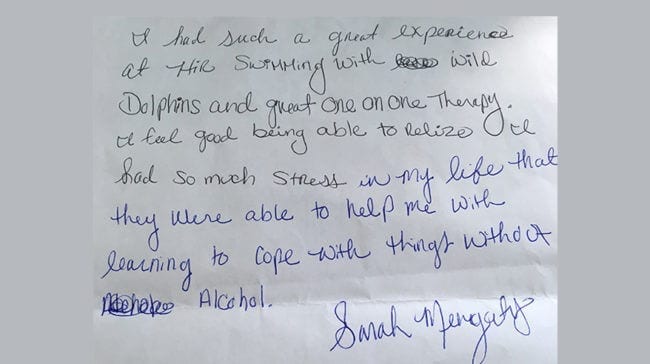 I had such a great experience
at HIR Swimming with wild
Dolphins and great one on one Therapy.
I feel good being able to relize I
had so much stress in my life that
they were able to help me with
learning to cope with things without
Alcohol.
Sarah